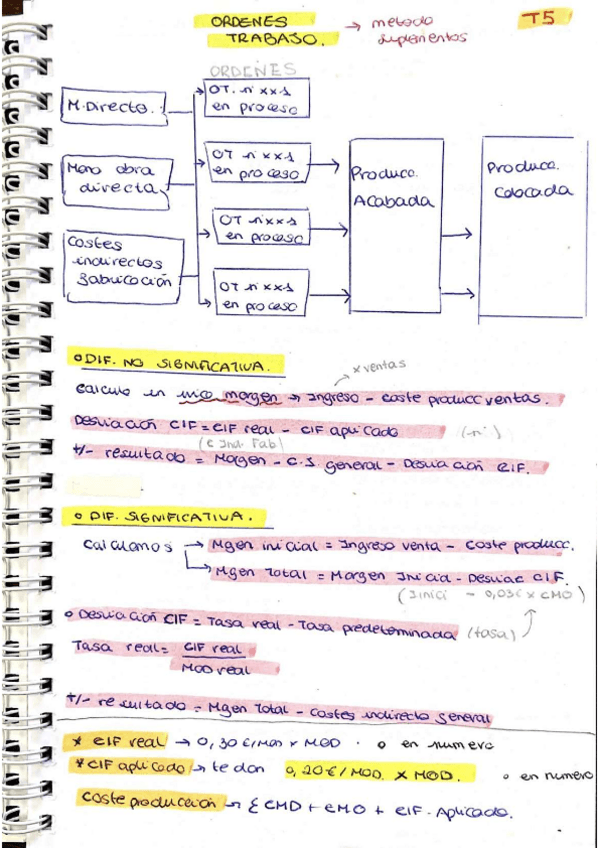 ORDENES TRABAJO. → metodo suplementos
T5
ORDENES
M.Directo.
Mano obra directa
Costes indirectos fabricación
OT. nº xx1 en proceso
OT nº xx1 en proceso
OT nº xx1 en proceso
OT nº xx1 en proceso
Producc. Acabada
Producc. Colocada
o DIF. NO SIGNIFICATIVA.
x ventas
calculo un unico margen → Ingreso - coste producc ventas.
Desviación CIF = CIF real - CIF aplicado (-n)
(C Ind. Fab)
+/- resultado = Margen - C.I. general - Desviación CIF.
o DIF. SIGNIFICATIVA.
calculamos → Mgen inicial = Ingreso venta - Coste producc.
→ Mgen Total = Margen Inicia - Desviac CIF.
(Inici - 0,03€ x CMO)
o Desviación CIF = Tasa real - Tasa predeterminada (tasa)
Tasa real = CIF real
MOD real
+/- resultado = Mgen Total - Costes indirecto general
* CIF real → 0,30 €/MOD x MOD. o en numero
* CIF aplicado → te dan 0,20€/MOD. x MOD. o en numero
Coste producción → Σ CMD + CMO + CIF. Aplicado.